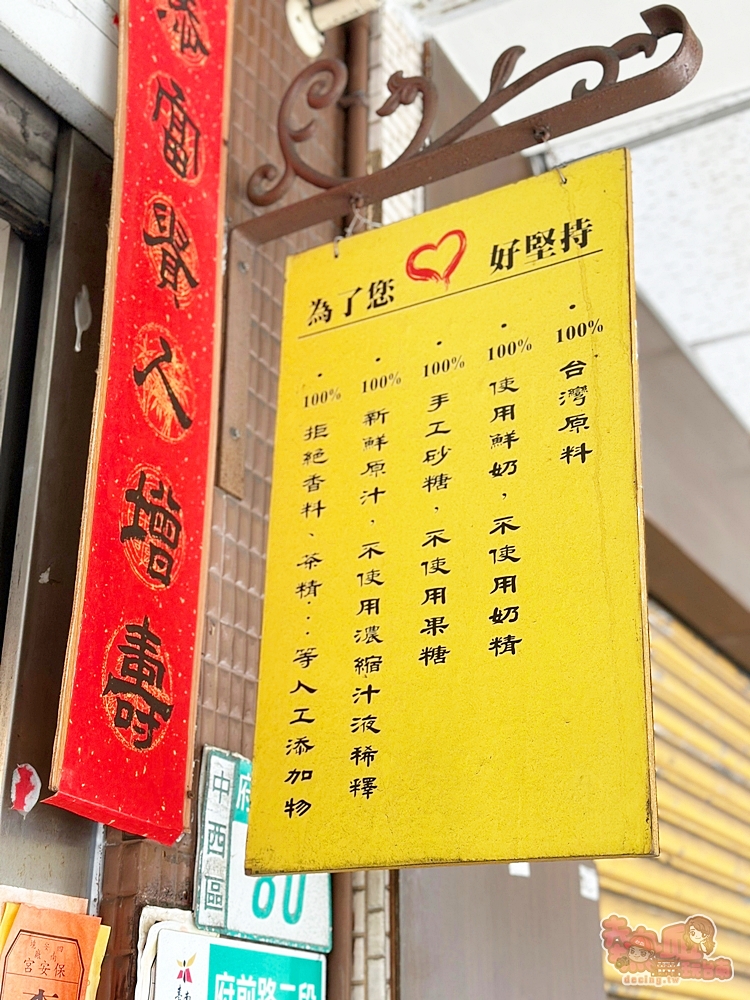 為了您 好堅持
・100% 台灣原料
・100% 使用鮮奶，不使用奶精
・100% 手工砂糖，不使用果糖
・100% 新鮮原汁，不使用濃縮汁液稀釋
・100% 拒絕香料、茶精...等人工添加物
添富貿人增壽
中西區
府
80
府前路二段
保安宮
decing.tw